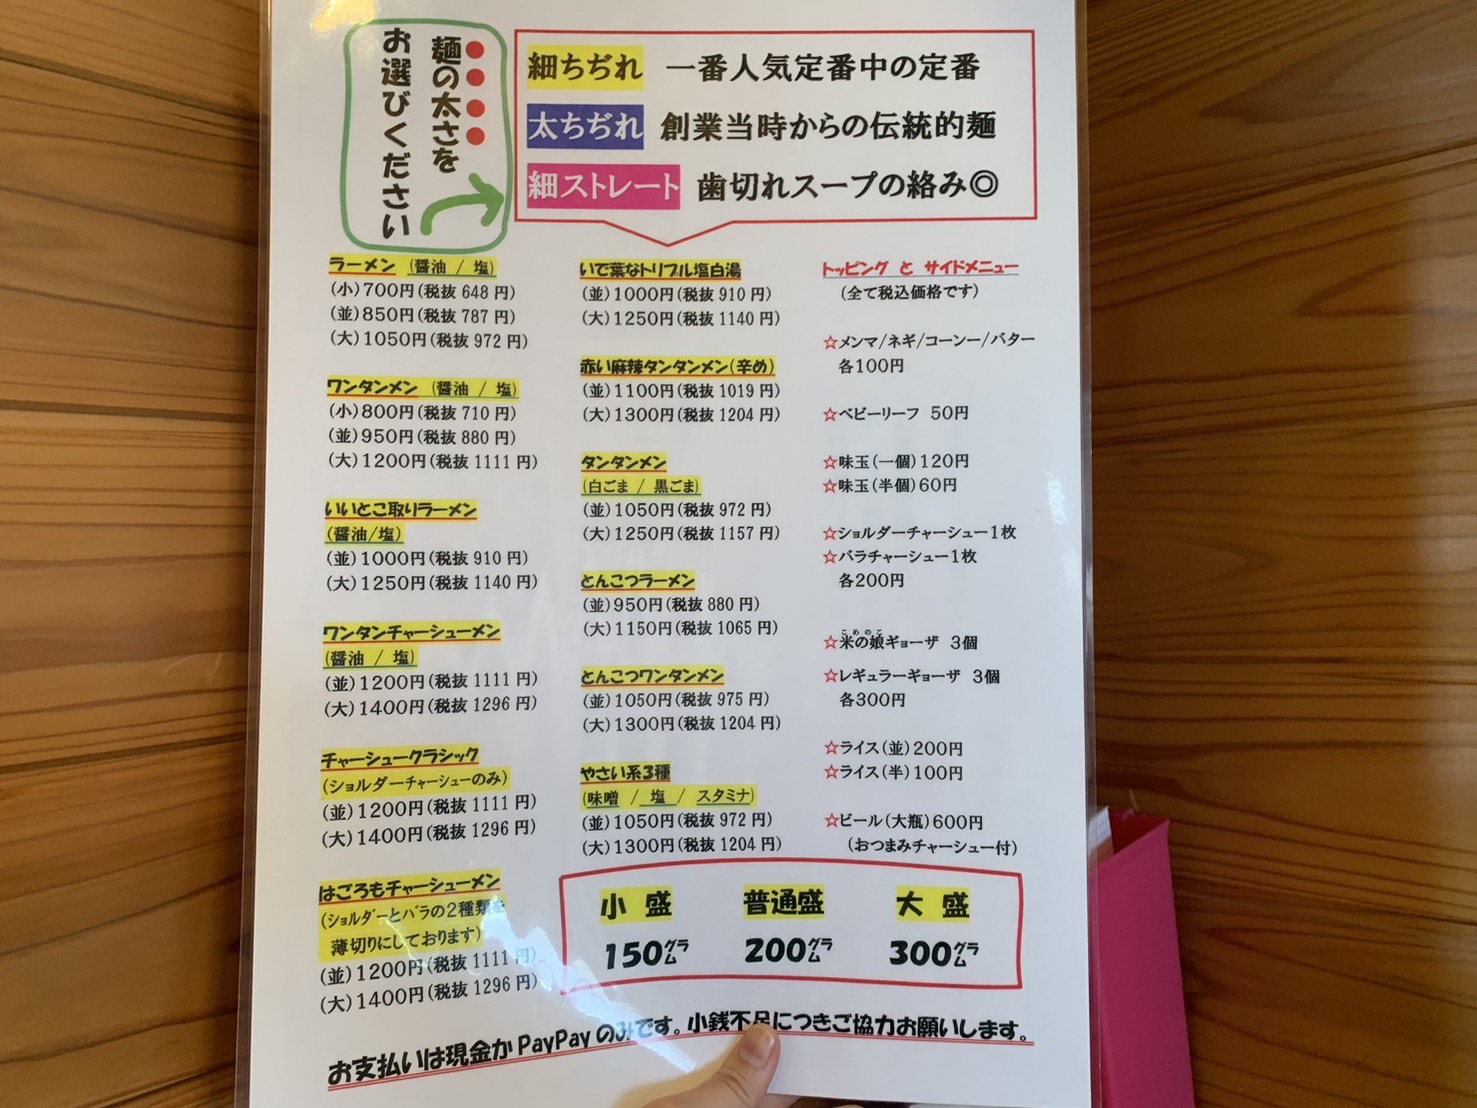 麺の太さを
お選びください
細ちぢれ 一番人気定番中の定番
太ちぢれ 創業当時からの伝統的麺
細ストレート 歯切れスープの絡み◎
ラーメン (醤油 / 塩)
(小)700円(税抜 648 円)
(並)850円(税抜 787 円)
(大)1050円(税抜 972 円)
ワンタンメン (醤油 / 塩)
(小)800円(税抜 710 円)
(並)950円(税抜 880 円)
(大)1200円(税抜 1111 円)
いいとこ取りラーメン
(醤油/塩)
(並)1000円(税抜 910 円)
(大)1250円(税抜 1140 円)
ワンタンチャーシューメン
(醤油 / 塩)
(並)1200円(税抜 1111 円)
(大)1400円(税抜 1296 円)
チャーシュークラシック
(ショルダーチャーシューのみ)
(並)1200円(税抜 1111 円)
(大)1400円(税抜 1296 円)
はごろもチャーシューメン
(ショルダーとバラの2種類を
薄切りにしております)
(並)1200円(税抜 1111 円)
(大)1400円(税抜 1296 円)
いで葉なトリプル塩白湯
(並)1000円(税抜 910 円)
(大)1250円(税抜 1140 円)
赤い麻辣タンタンメン(辛め)
(並)1100円(税抜 1019 円)
(大)1300円(税抜 1204 円)
タンタンメン
(白ごま / 黒ごま)
(並)1050円(税抜 972 円)
(大)1250円(税抜 1157 円)
とんこつラーメン
(並)950円(税抜 880 円)
(大)1150円(税抜 1065 円)
とんこつワンタンメン
(並)1050円(税抜 975 円)
(大)1300円(税抜 1204 円)
やさい系3種
(味噌 / 塩 / スタミナ)
(並)1050円(税抜 972 円)
(大)1300円(税抜 1204 円)
トッピング と サイドメニュー
(全て税込価格です)
☆メンマ/ネギ/コーンー/バター
各100円
☆ベビーリーフ 50円
☆味玉(一個)120円
☆味玉(半個)60円
☆ショルダーチャーシュー1枚
☆バラチャーシュー1枚
各200円
こめのこ
☆米の娘ギョーザ 3個
☆レギュラーギョーザ 3個
各300円
☆ライス(並)200円
☆ライス(半)100円
☆ビール(大瓶)600円
(おつまみチャーシュー付)
小 盛 普通盛 大 盛
150グラム 200グラム 300グラム
お支払いは現金かPayPayのみです。小銭不足につきご協力お願いします。